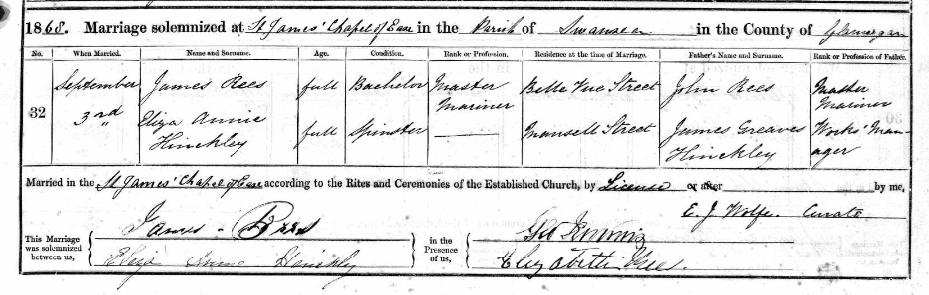 1868. Marriage solemnized at St James' Chapel of Ease in the Parish of Swansea in the County of Glamorgan
No. When Married. Name and Surname. Age. Condition. Rank or Profession. Residence at the time of Marriage. Father's Name and Surname. Rank or Profession of Father.
32 September 3rd James Rees full Bachelor Master Mariner Belle Vue Street John Rees Master Mariner
Eliza Annie Hinckley full Spinster Mansell Street James Greaves Hinckley Works' Manager
Married in the St James' Chapel of Ease according to the Rites and Ceremonies of the Established Church, by License or after by me,
E. J. Wolfe. Curate
This Marriage was solemnized between us,
James Rees
Eliza Annie Hinckley
in the Presence of us,
Geo
Elizabeth Rees.